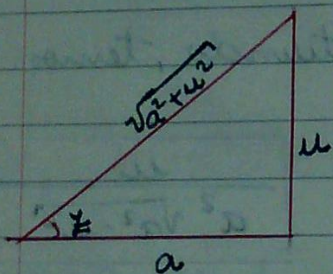 √a²+u²
u
z
a